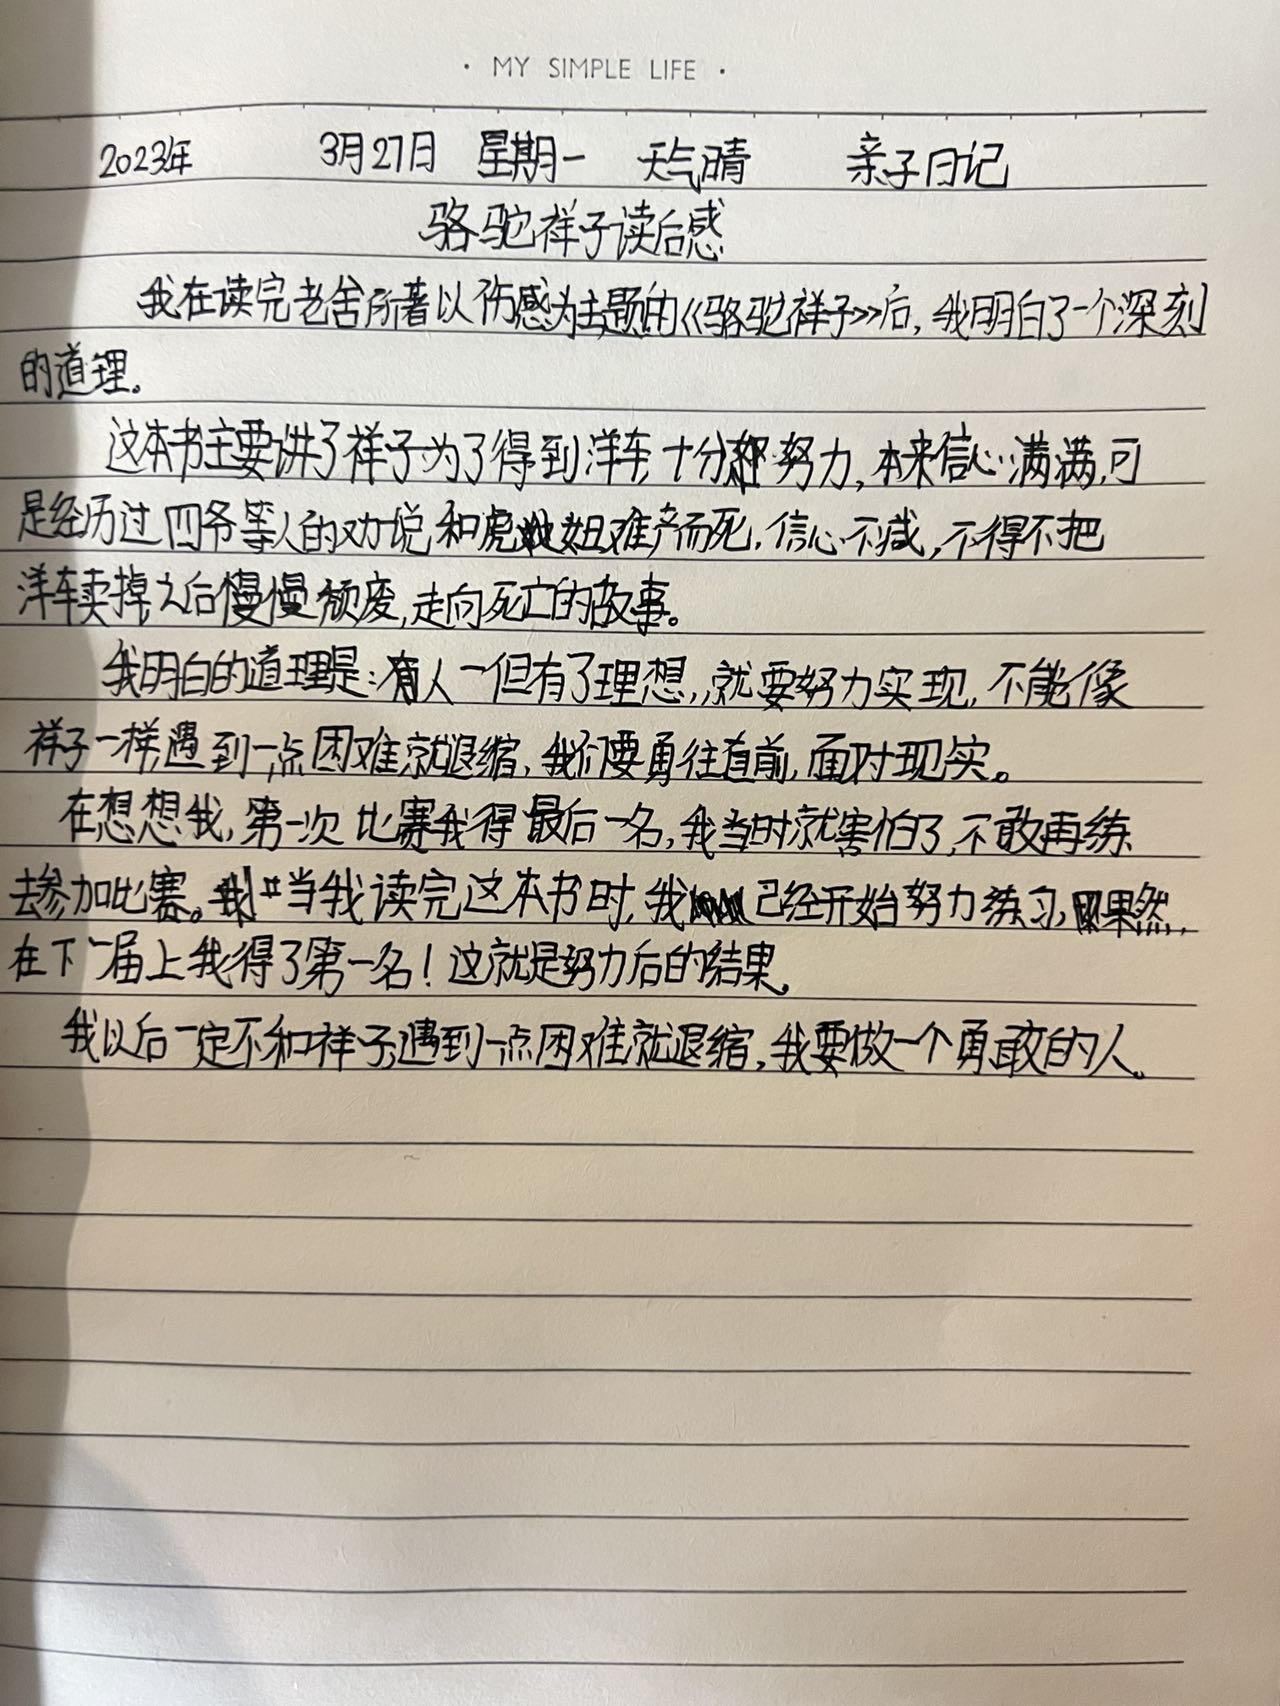 · MY SIMPLE LIFE ·
2023年 3月27日 星期一 天气晴 亲子日记
骆驼祥子读后感
我在读完老舍所著以伤感为主题的《骆驼祥子》后，我明白了一个深刻
的道理。
这本书主要讲了祥子为了得到洋车,十分努力,本来信心满满,可
是经历过四爷等人的劝说,和虎妞难产而死,信心不减,不得不把
洋车卖掉之后慢慢颓废,走向死亡的故事。
我明白的道理是:人一但有了理想,就要努力实现,不能像
祥子一样,遇到一点困难就退缩,我们要勇往直前,面对现实。
在想想我,第一次比赛我得最后一名,我当时就害怕了,不敢再练
去参加比赛。当我读完这本书时,我已经开始努力练习,果然,
在下一届上我得了第一名!这就是努力后的结果。
我以后一定不和祥子,遇到一点困难就退缩,我要做一个勇敢的人。